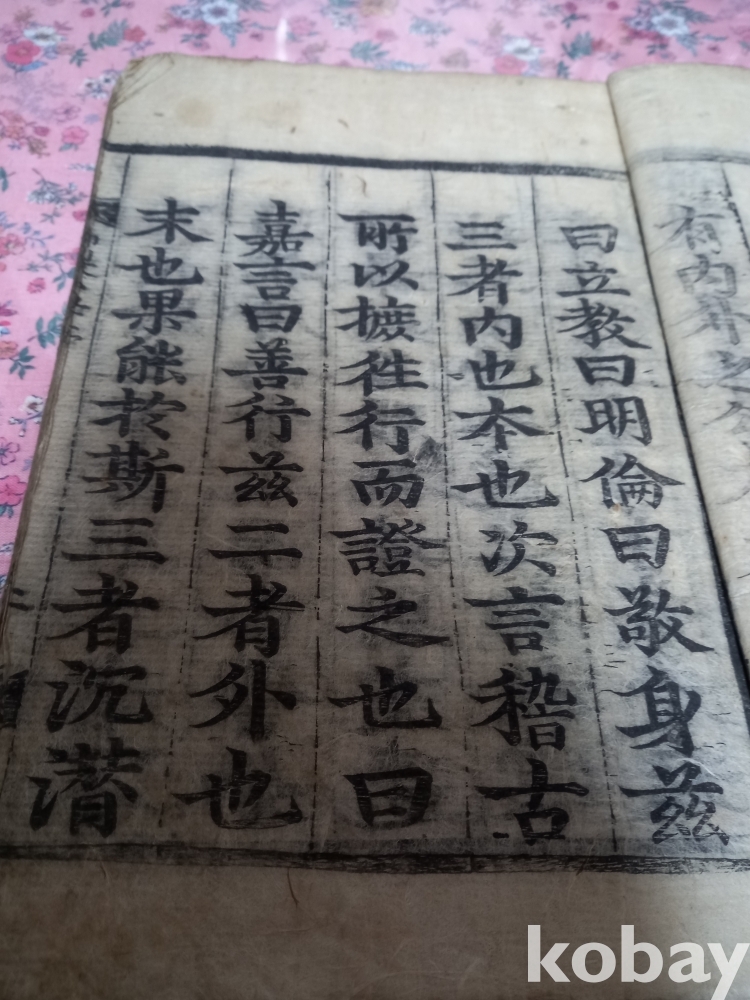 有內外之
曰立教曰明倫曰敬身茲
三者內也本也次言稽古
所以摭徃行而證之也曰
嘉言曰善行茲二者外也
末也果能於斯三者沉潛
kobay